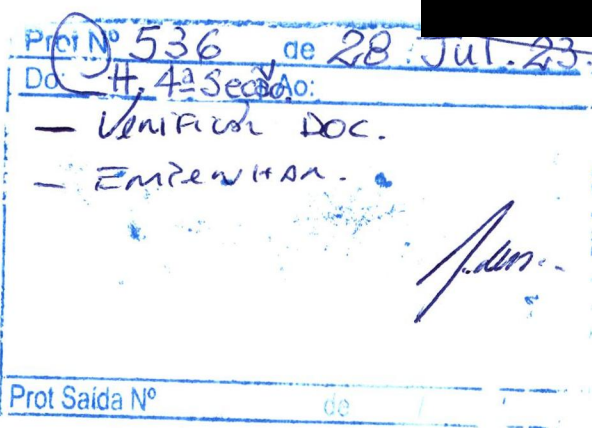 Prot Nº 536 de 28 Jul. 23.
Do: H. 4ª Secão Ao:
— Verificar DOC.
— Empenhar.
Prot Saída Nº de / /